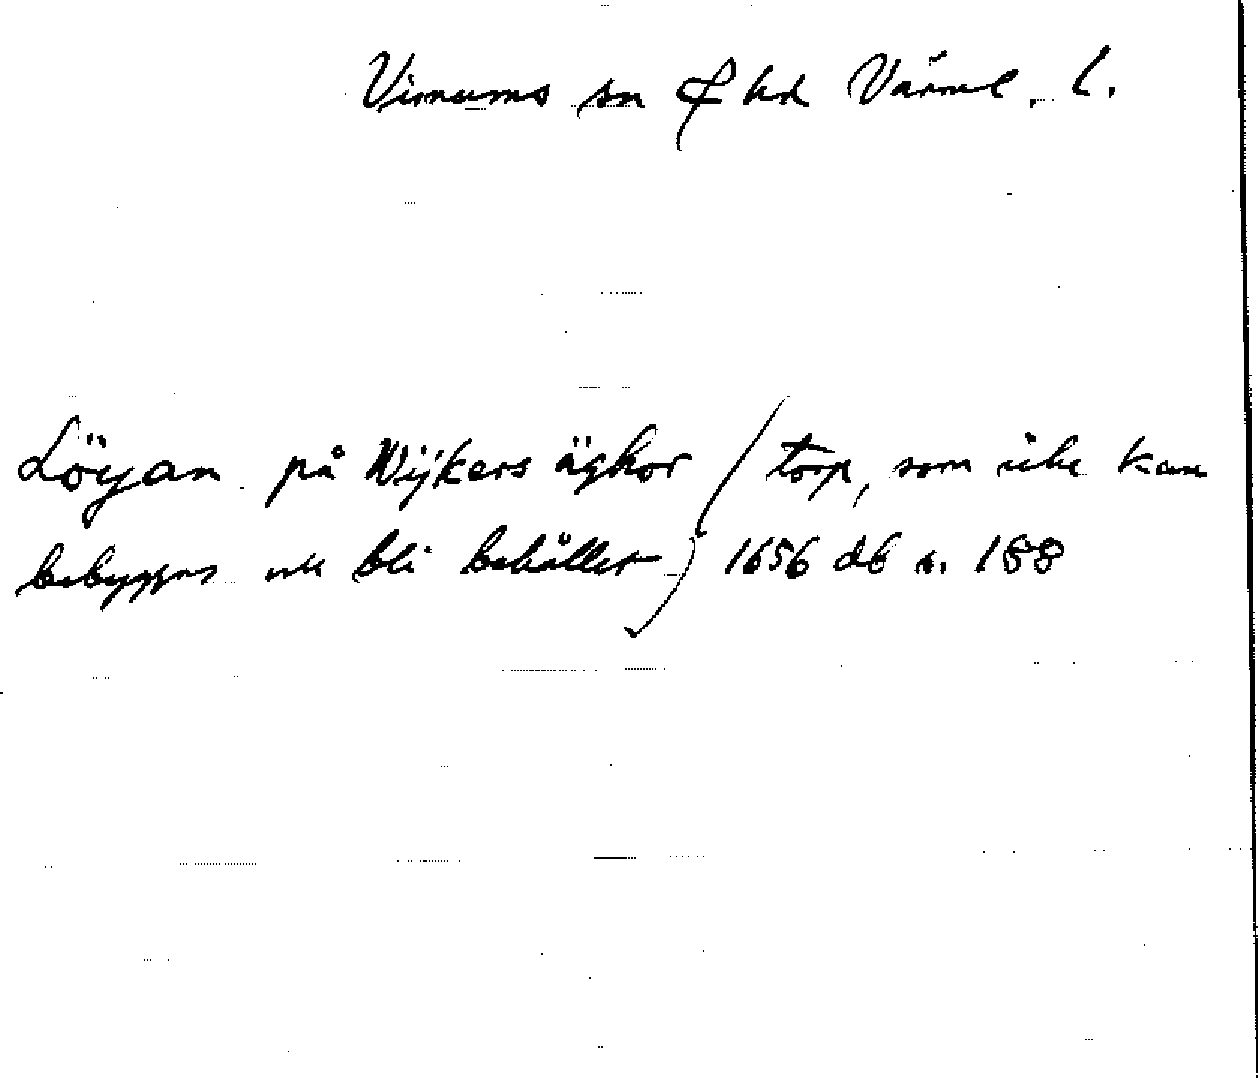 Visnums sn & hd Värml. l.
Löyan på Wijkers äghor (torp, som icke kan
bebyggas och bli behållet) 1656 db s. 188